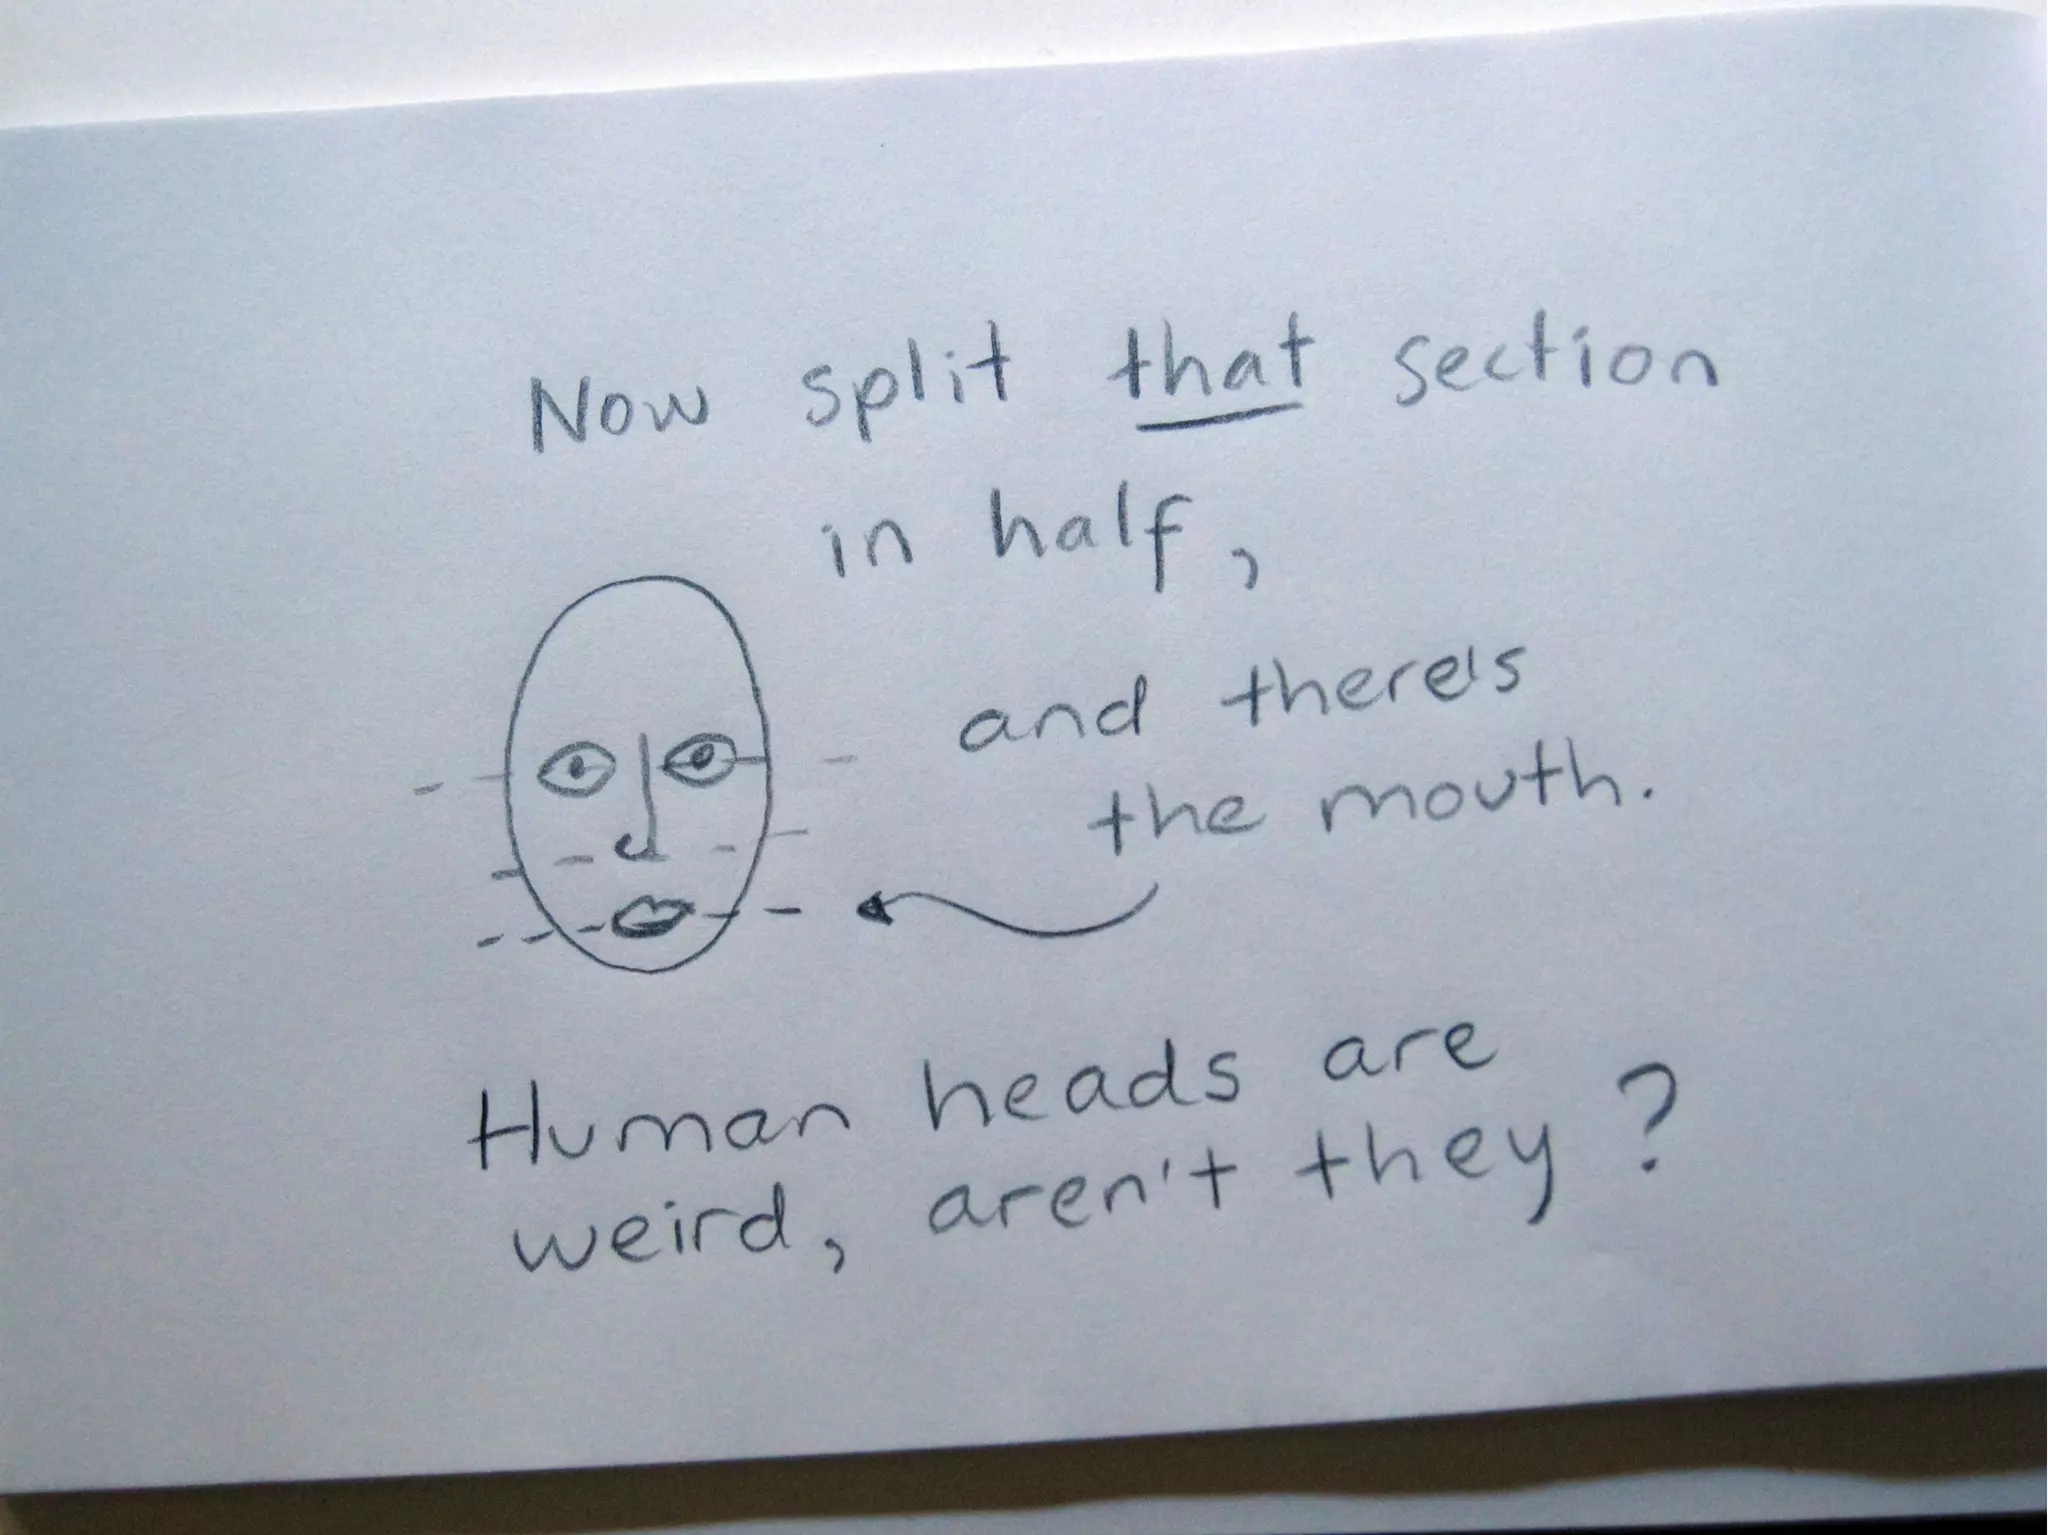 Now split that section
in half,
and there's
the mouth.
Human heads are
weird, aren't they?